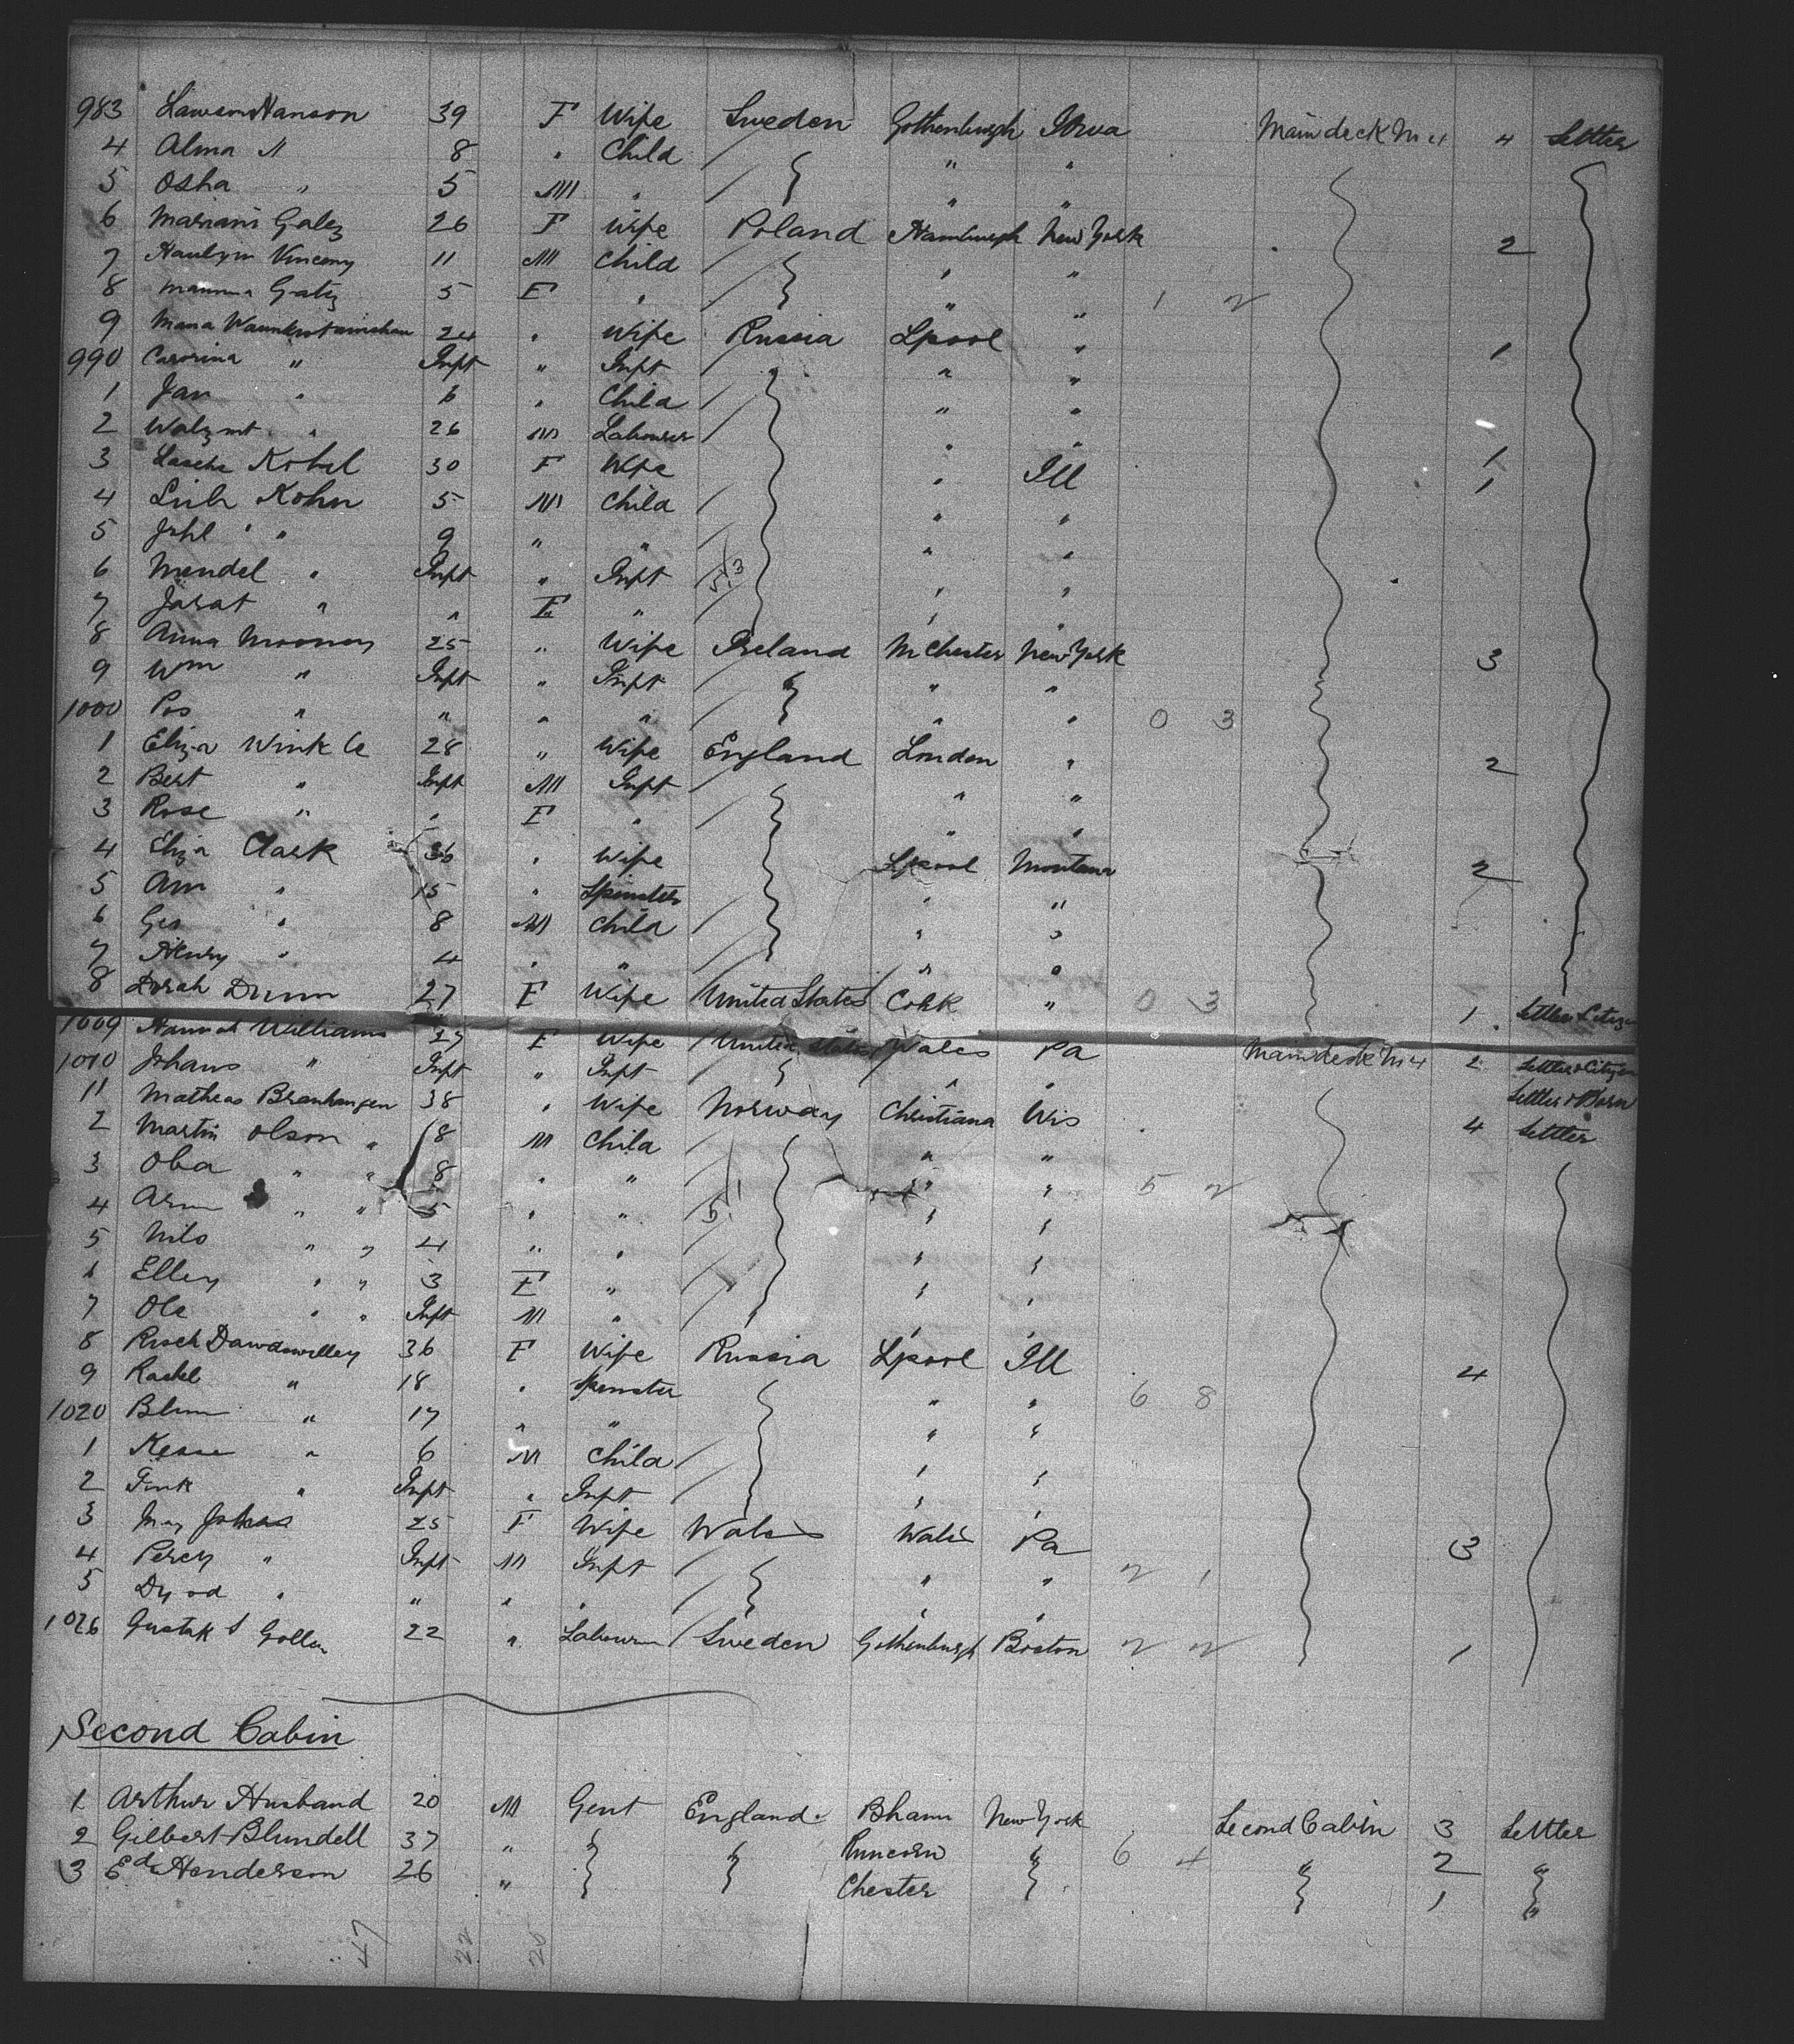 983 Lawson Hanson 39 F Wife Sweden Gothenburgh Iowa Main deck M 4 4 Settler
4 Alma " 8 " Child " "
5 Osha " 5 M " " "
6 Mariani Galez 26 F Wife Poland Hamburgh New York 2
7 Vinceny 11 M Child " "
8 5 F " " " 1 2
9 Maria 24 " Wife Russia Lpool " 1
990 Cororina " Inft " Inft " " "
1 Jan " 6 " Child " "
2 Walzmt " 26 M Labourer " " 1
3 Kobel 30 F Wife " Ill 1
4 Leib Kohn 5 M Child " "
5 Johl " " 9 " " " "
6 Mendel " Inft " Inft 53 " "
7 Jarat " " F " " "
8 Anna Mooney 25 " Wife Ireland M Chester New York 3
9 Wm " Inft " Inft " " "
1000 " " " " " " 0 3
1 Eliza Winkle 28 " Wife England London " 2
2 Bert " Inft M Inft " "
3 Rose " " F " " "
4 Eliza Clark 36 " Wife Lpool Montana 2
5 Ann " 15 " Spinster " "
6 Geo " 8 M Child " "
7 Henry " 4 " " " "
8 Dorah Dunn 27 F Wife United States Cork " 0 3 1 Settler Citizen
1009 Hannah Williams 27 F Wife United States Wales Pa Main deck M 4 2 Settler & Citizen
1010 Johans " Inft " Inft " " Settler & Born
11 Matheas 38 " Wife Norway Christiana Wis 4 Settler
2 Martin Olson " 8 M Child " "
3 Oba " " 8 " " " " 5 2
4 " " 5 " " 5 1 " "
5 Nilo " " 4 " " " "
6 Elley " " 3 F " " "
7 Ole " " Inft M " " "
8 Risch 36 F Wife Russia Lpool Ill 4
9 Rachel " 18 " Spinster " " 6 8
1020 Blum " 17 " " " "
1 " 6 M Child " "
2 Fink " Inft " Inft " "
3 May Johns 25 F Wife Wales Wales Pa 3
4 Percy " Inft M Inft " " 2 1
5 " " " " " "
1026 Gustak S 22 " Labourer Sweden Gothenburgh Boston 2 2 1
Second Cabin
1 Arthur Husband 20 M Gent England Bham New York Second Cabin 3 Settler
2 Gilbert Blundell 37 " " " Runcorn " 6 4 " 2 "
3 Ed Henderson 26 " Chester 1 "
47 22 26